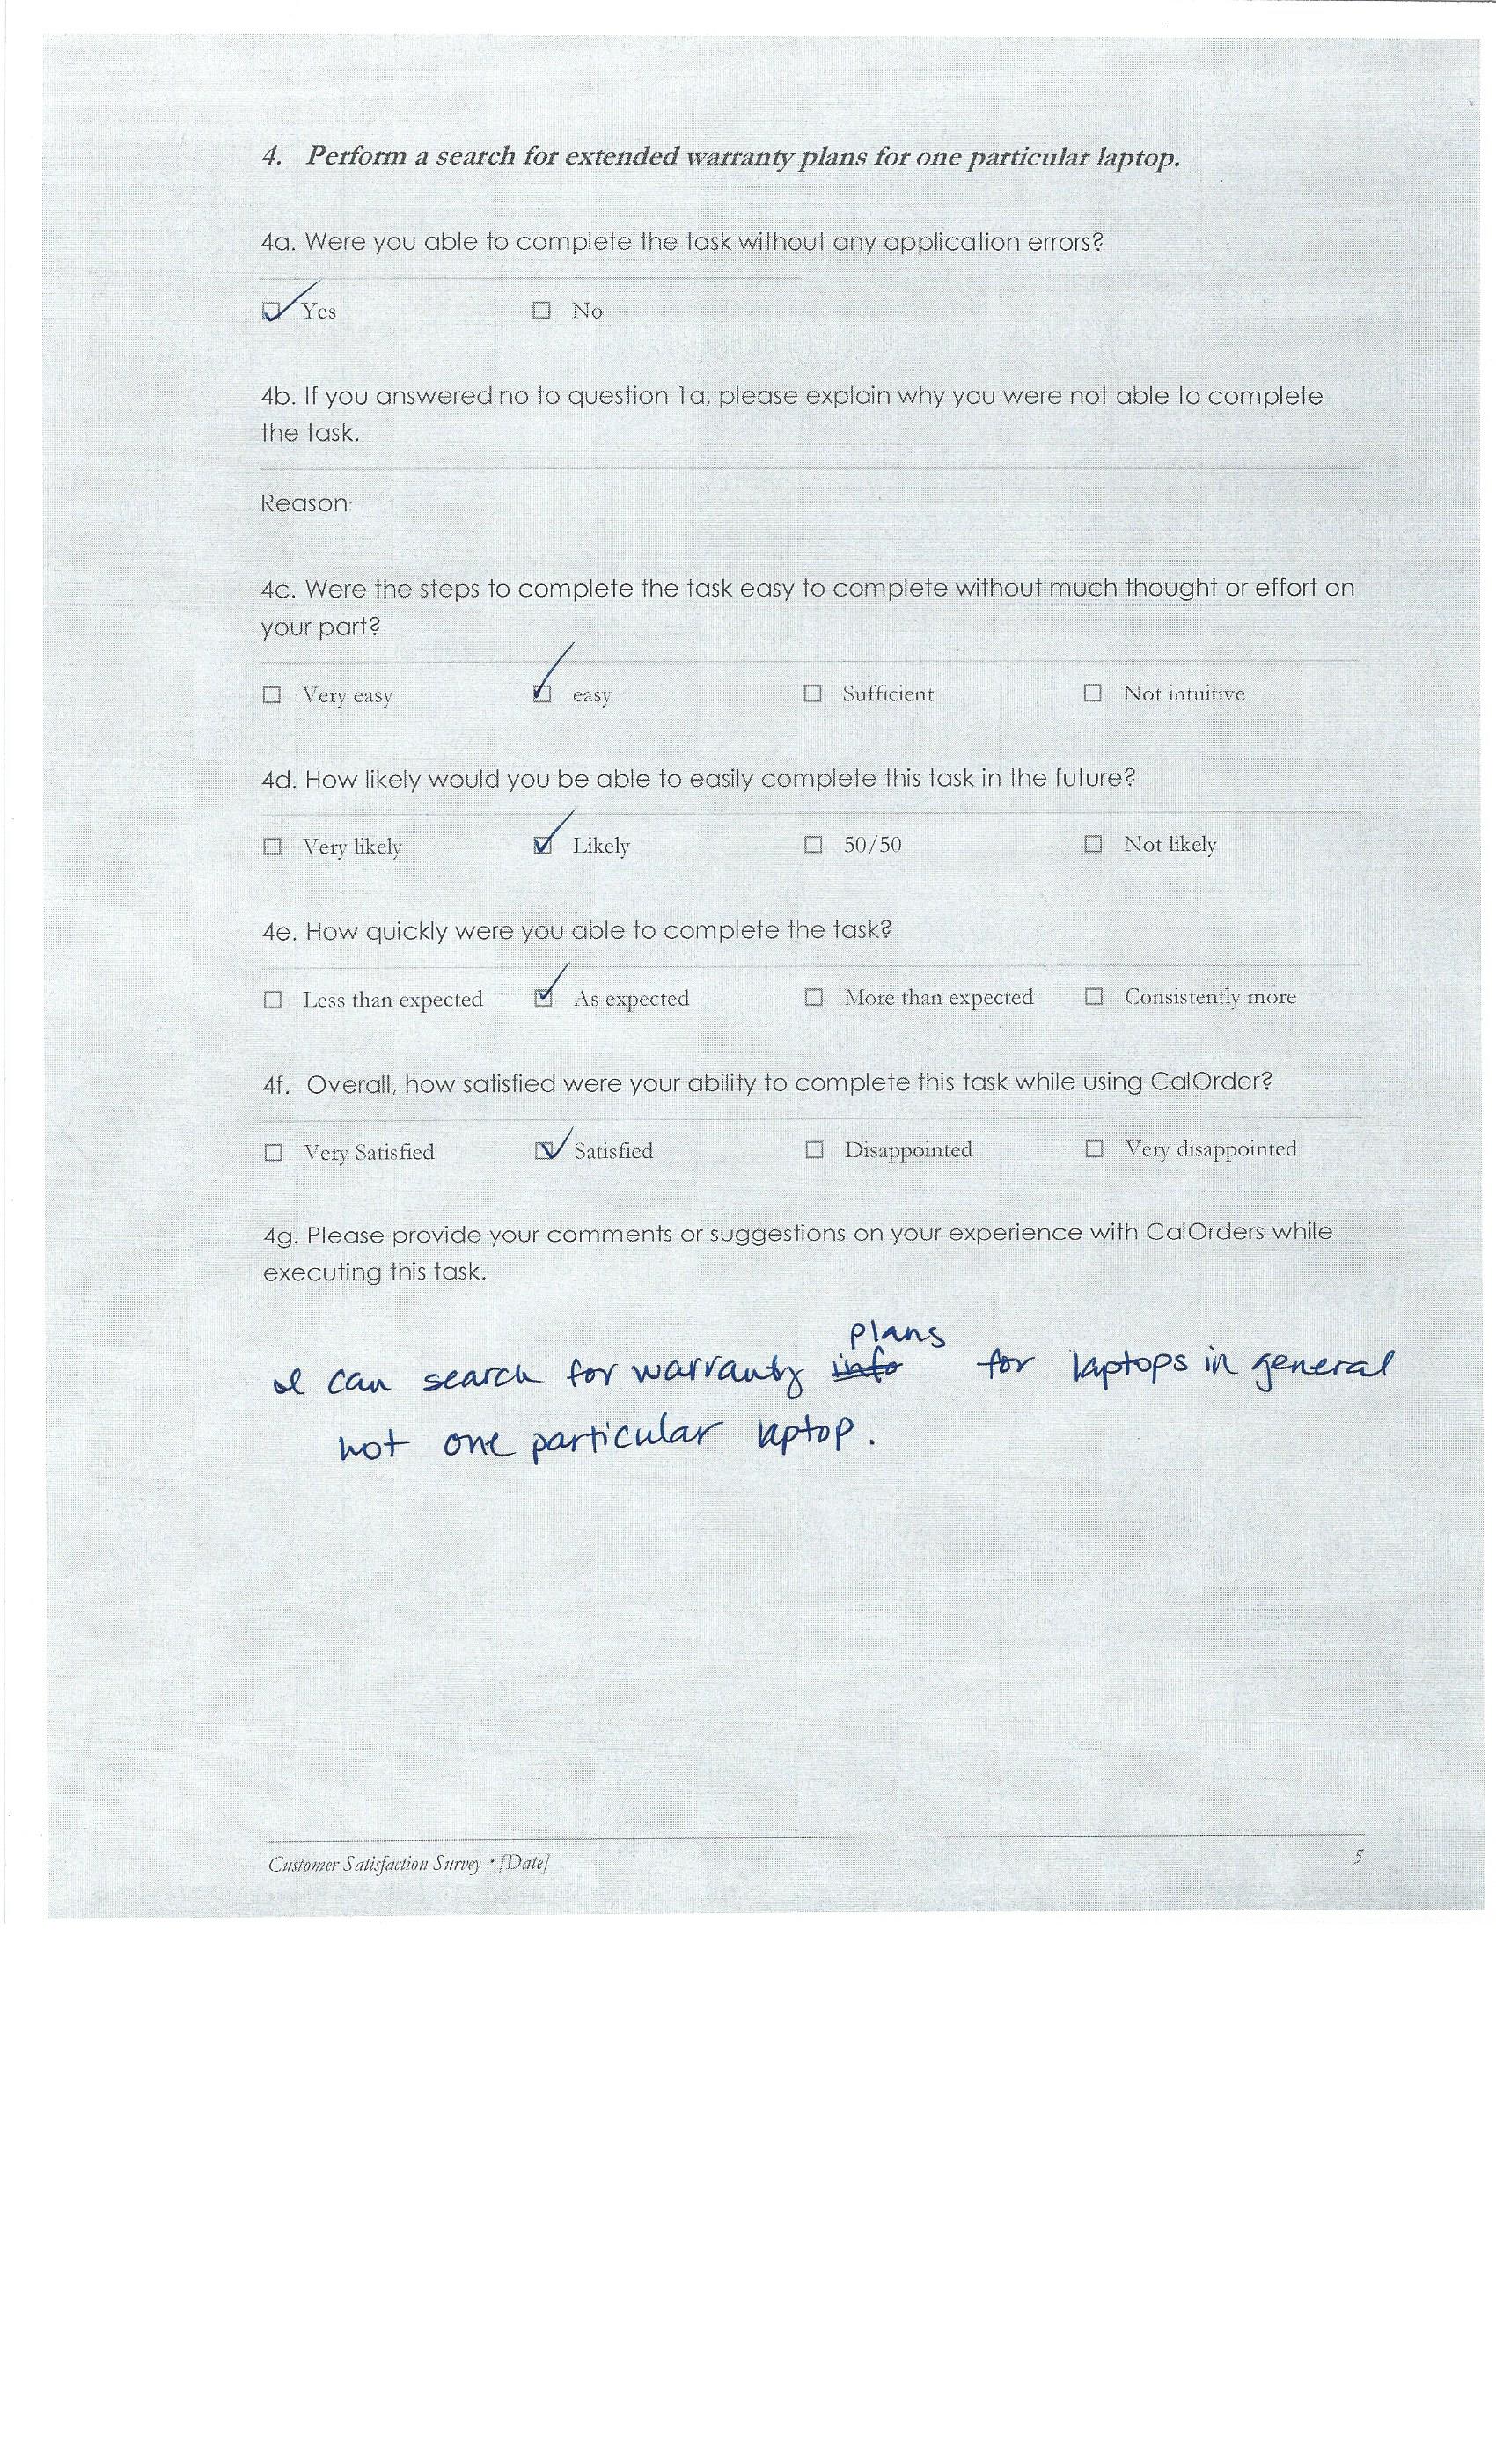 4. Perform a search for extended warranty plans for one particular laptop.
4a. Were you able to complete the task without any application errors?
☑ Yes ☐ No
4b. If you answered no to question 1a, please explain why you were not able to complete
the task.
Reason:
4c. Were the steps to complete the task easy to complete without much thought or effort on
your part?
☐ Very easy ☑ easy ☐ Sufficient ☐ Not intuitive
4d. How likely would you be able to easily complete this task in the future?
☐ Very likely ☑ Likely ☐ 50/50 ☐ Not likely
4e. How quickly were you able to complete the task?
☐ Less than expected ☑ As expected ☐ More than expected ☐ Consistently more
4f. Overall, how satisfied were your ability to complete this task while using CalOrder?
☐ Very Satisfied ☑ Satisfied ☐ Disappointed ☐ Very disappointed
4g. Please provide your comments or suggestions on your experience with CalOrders while
executing this task.
plans
I can search for warranty info for laptops in general
not one particular laptop.
Customer Satisfaction Survey • [Date] 5